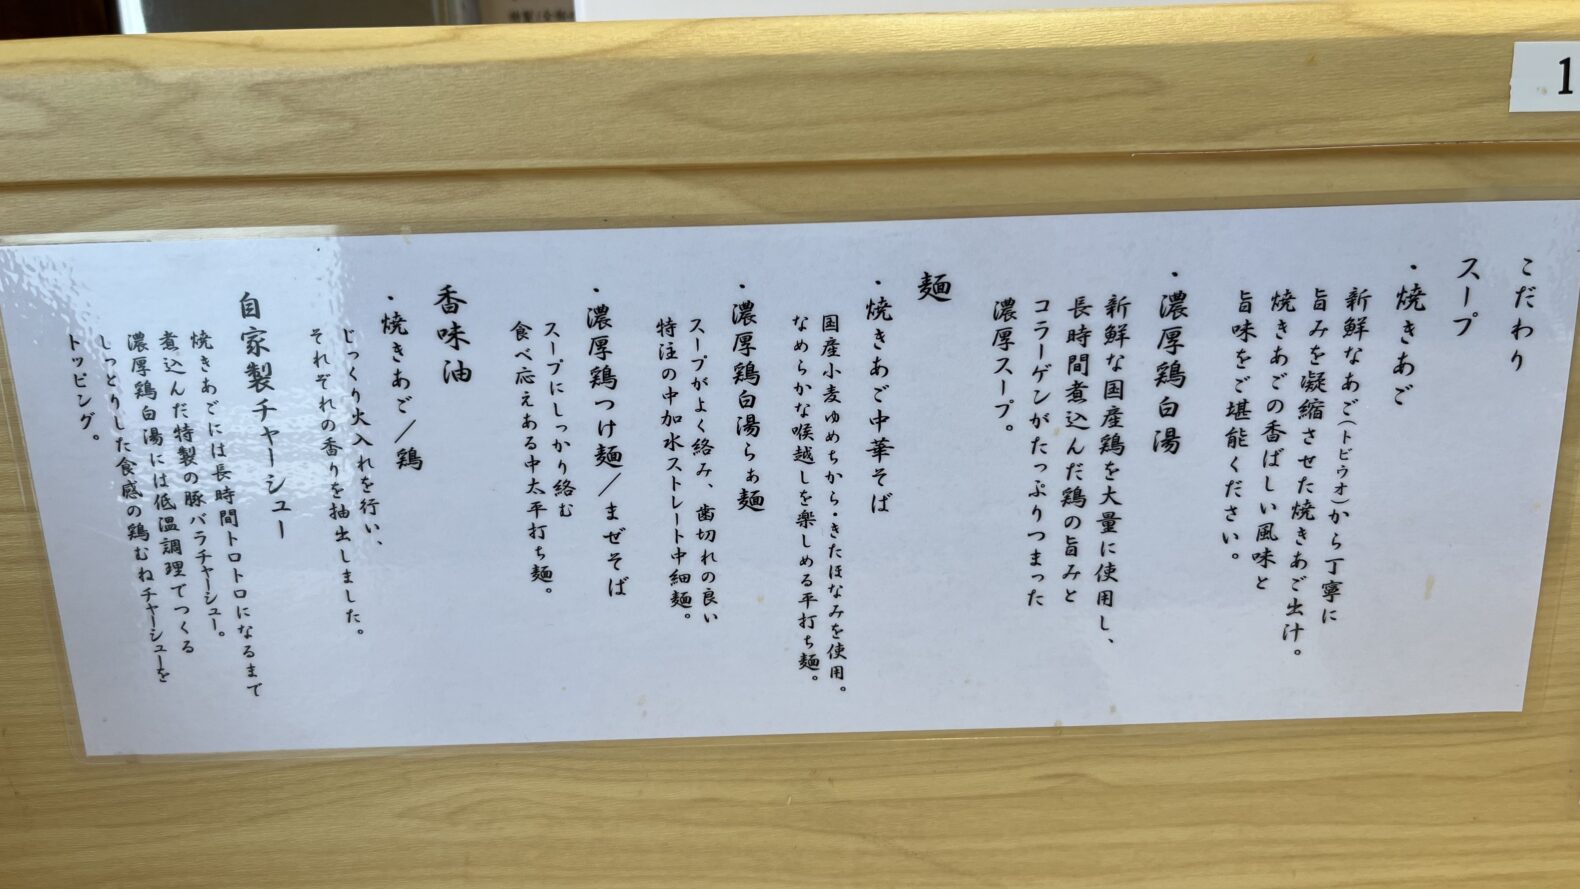 1
こだわり
スープ
・焼きあご
新鮮なあご(トビウオ)から丁寧に
旨みを凝縮させた焼きあご出汁。
焼きあごの香ばしい風味と
旨味をご堪能ください。
・濃厚鶏白湯
新鮮な国産鶏を大量に使用し、
長時間煮込んだ鶏の旨みと
コラーゲンがたっぷりつまった
濃厚スープ。
麺
・焼きあご中華そば
国産小麦ゆめちから・きたほなみを使用。
なめらかな喉越しを楽しめる平打ち麺。
・濃厚鶏白湯らぁ麺
スープがよく絡み、歯切れの良い
特注の中加水ストレート中細麺。
・濃厚鶏つけ麺／まぜそば
スープにしっかり絡む
食べ応えある中太平打ち麺。
香味油
・焼きあご／鶏
じっくり火入れを行い、
それぞれの香りを抽出しました。
自家製チャーシュー
焼きあごには長時間トロトロになるまで
煮込んだ特製の豚バラチャーシュー。
濃厚鶏白湯には低温調理でつくる
しっとりした食感の鶏むねチャーシューを
トッピング。